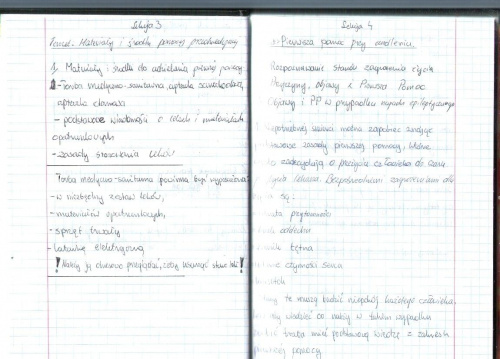 Lekcja 3
Temat: Materiały i środki pomocy przedmedycznej
1. Materiały i środki do udzielania pierwszej pomocy.
- Torba medyczno-sanitarna, apteczka samochodowa,
apteczka domowa
- podstawowe wiadomości o lekach i materiałach
opatrunkowych
- zasady stosowania leków
Torba medyczno-sanitarna powinna być wyposażona:
- w niezbędny zestaw leków,
- materiałów opatrunkowych,
- sprzęt trwały
- latarkę elektryczną
! Należy ją okresowo przeglądać, żeby usunąć stare leki !
Lekcja 4
Pierwsza pomoc przy omdleniu
Rozpoznawanie stanów zagrożenia życia
Przyczyny, objawy i Pierwsza Pomoc
Objawy i PP w przypadku napadu epileptycznego
niepotrzebnej można zapobiec znając
zasady pierwszej pomocy, które
zadecydują o przeżyciu człowieka do czasu
lekarza. Bezpośrednim zagrożeniem dla
są:
przytomności
oddechu
tętna
czynności serca
te muszą budzić niepokój każdego człowieka.
wiedzieć co należy w takim wypadku
trzeba mieć podstawową wiedzę z zakresu
pierwszej pomocy